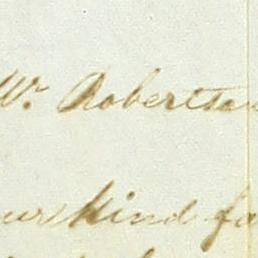 Mr. Robertson
our kind fa